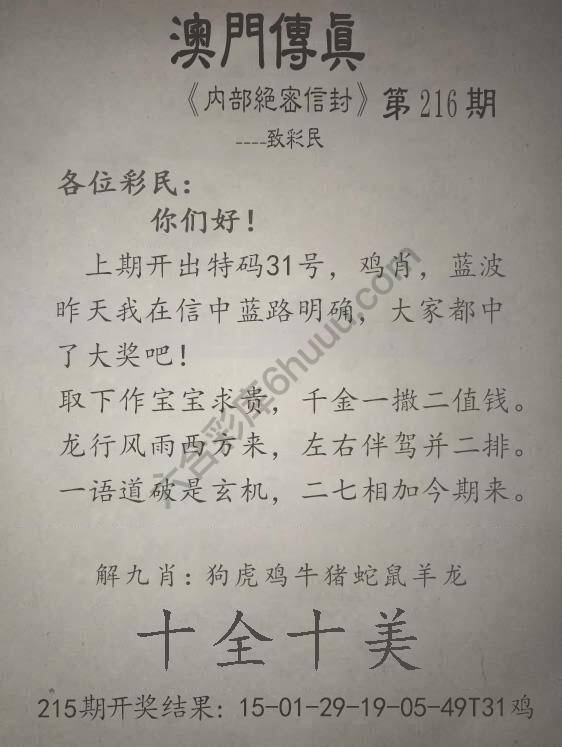 澳門傳眞
《内部絕密信封》第216期
----致彩民
各位彩民：
你们好！
上期开出特码31号，鸡肖，蓝波
昨天我在信中蓝路明确，大家都中
了大奖吧！
取下作宝宝求贵，千金一撒二值钱。
龙行风雨西方来，左右伴驾并二排。
一语道破是玄机，二七相加今期来。
六合彩库6huuu.com
解九肖：狗虎鸡牛猪蛇鼠羊龙
十全十美
215期开奖结果：15-01-29-19-05-49T31鸡